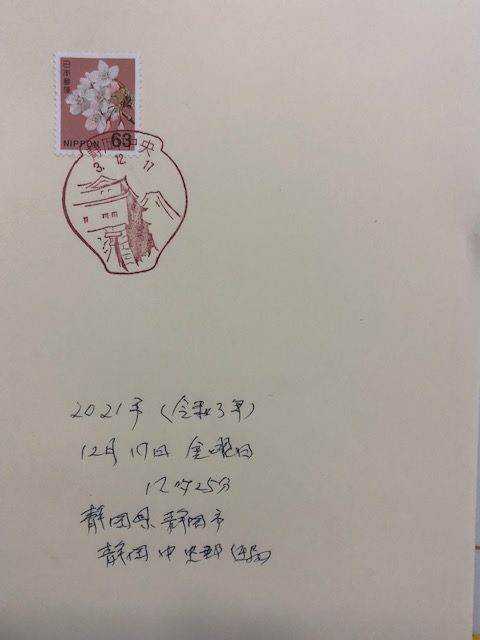 日本郵便
NIPPON 63
静岡中央
3.12.17
2021年(令和3年)
12月17日 金曜日
12時25分
静岡県静岡市
静岡中央郵便局